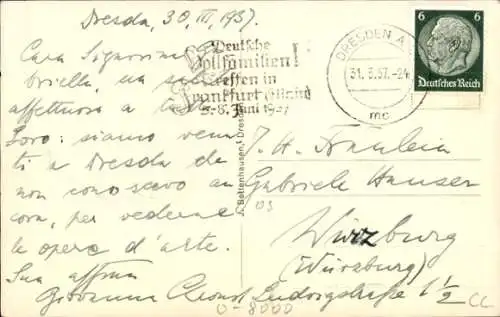 Dresda, 30, III, 1937.
Cara Signorina Ga
briella, un saluto
affettuoso a tutti
Loro: siamo venu
ti a Dresda che
non conoscevo an
cora, per vederne
le opere d'arte.
Sua affma
Giovanna
Deutsche
Vollfamilien!
treffen in
Frankfurt
Juni 1937
DRESDEN A
31.3.37.-24
mc
6 6
Deutsches Reich
A. Bettenhausen, Dresden
Fräulein
Gabriele Hauser
Würzburg
(Würzburg)
Ludwigstraße 1 1/2
0-8000